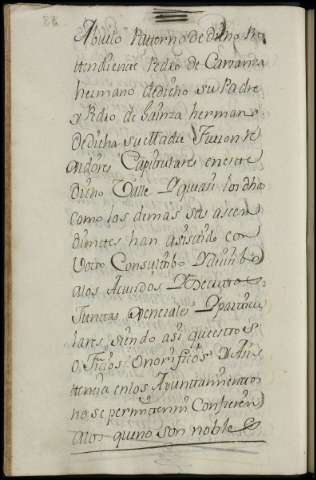 Abuelo Paterno de dicho Pre
tendiente Pedro de Carranza
hermano de dicho su Padre
y Pedro de hermano
de dicha su Madre Fueron Re
gidores Capitulares en este
dicho Valle Y que asi los dhos
como los demas sus ascen
dientes han asistido con
Voto Consultibo Y decisibo
a los Acuerdos Y Decretos
Juntas Generales Y particu
lares, siendo asi que estos
oficios Onorificos Y Asis
tencia en los Ayuntamientos
no se permiten ni Confieren
a los que no son nobles